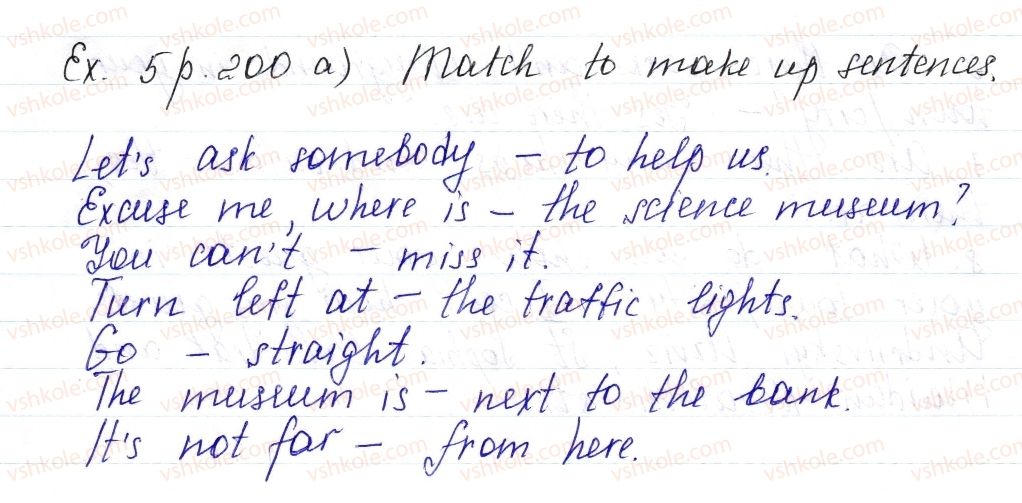 Ex. 5 p. 200 a) Match to make up sentences.
Let's ask somebody – to help us.
Excuse me, where is – the science museum?
You can't – miss it.
Turn left at – the traffic lights.
Go – straight.
The museum is – next to the bank.
It's not far – from here.